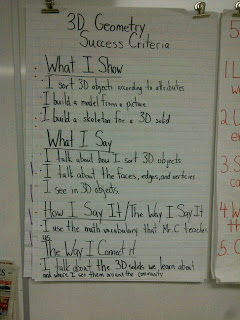 3D Geometry
Success Criteria
What I Show
I sort 3D objects according to attributes
I build a model from a picture
I build a skeleton for a 3D solid
What I Say
I talk about how I sort 3D objects
I talk about the faces, edges, and vertices
I see in 3D objects.
How I Say It/The Way I Say It
I use the math vocabulary that Mr. C teaches
us
The Way I Connect it
I talk about the 3D solids we learn about
and where I see them around the community
5
1.
2.
3.
4.
5.